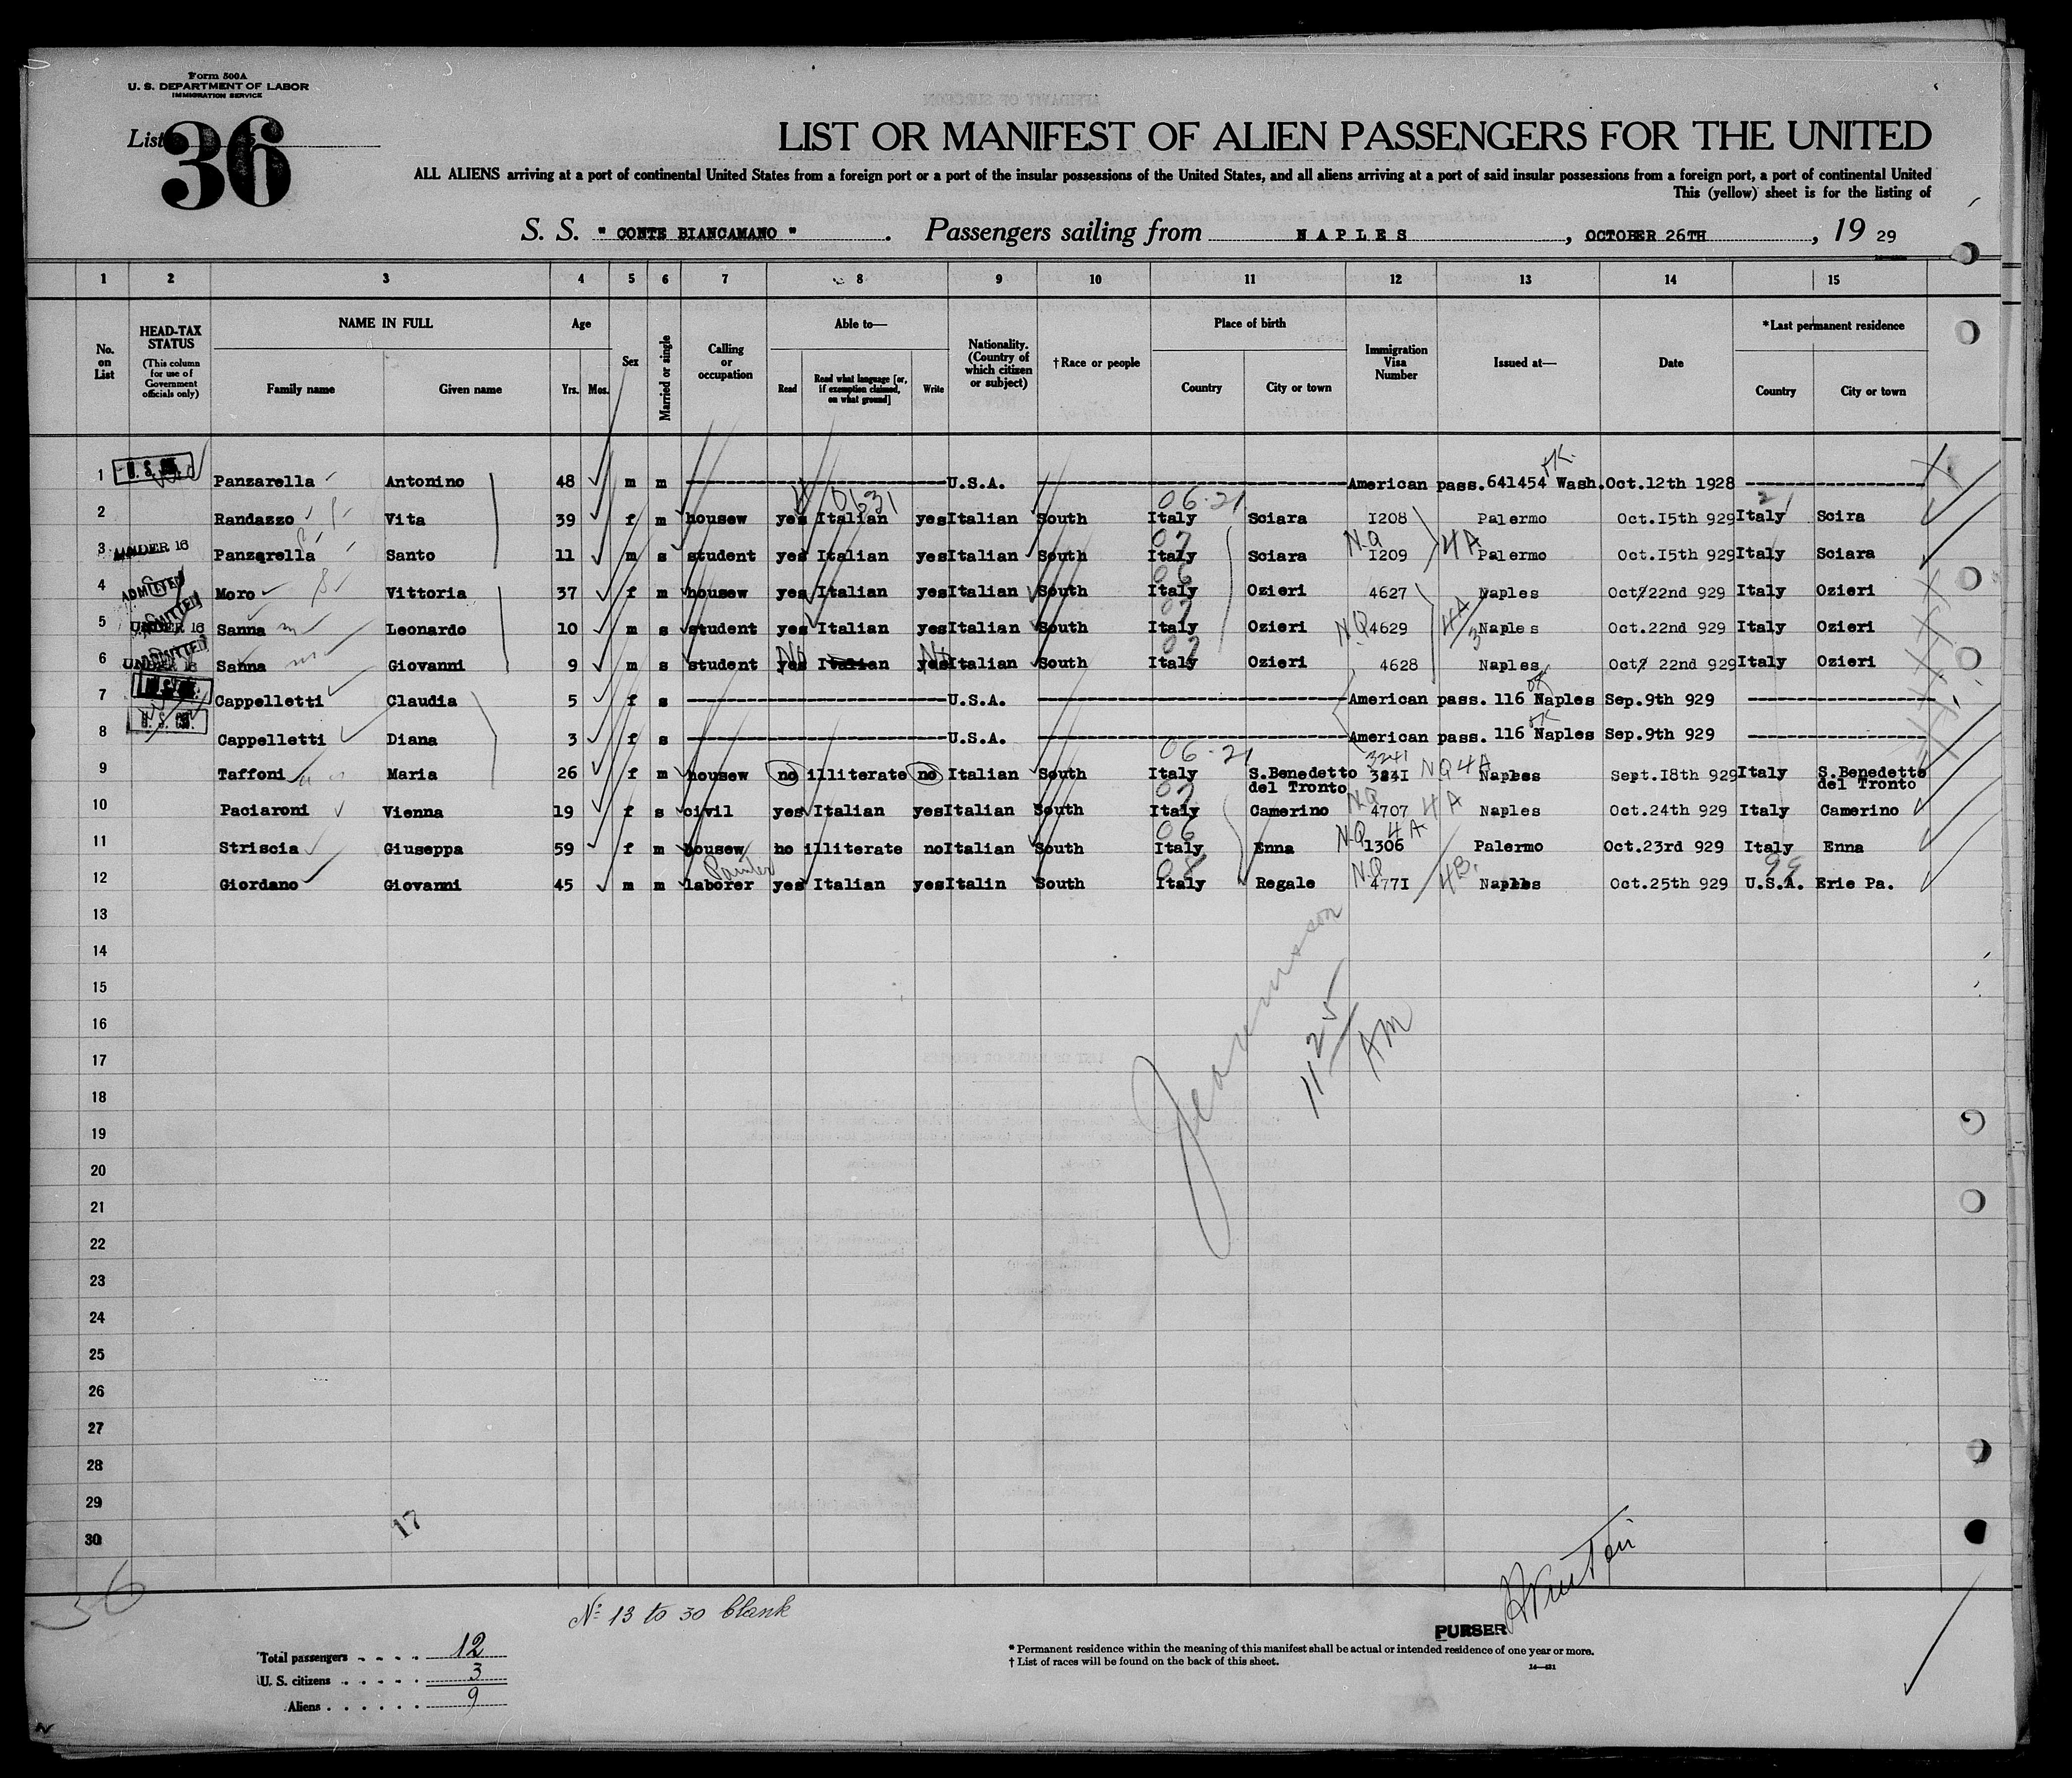 Form 500A
U. S. DEPARTMENT OF LABOR
IMMIGRATION SERVICE
List 36
LIST OR MANIFEST OF ALIEN PASSENGERS FOR THE UNITED
ALL ALIENS arriving at a port of continental United States from a foreign port or a port of the insular possessions of the United States, and all aliens arriving at a port of said insular possessions from a foreign port, a port of continental United
This (yellow) sheet is for the listing of
S. S. " CONTE BIANCAMANO ". Passengers sailing from NAPLES, OCTOBER 26TH, 19 29
1 2 3 4 5 6 7 8 9 10 11 12 13 14 15
No. on List
HEAD-TAX STATUS
(This column for use of Government officials only)
NAME IN FULL
Family name Given name
Age
Yrs. Mos.
Sex
Married or single
Calling or occupation
Able to—
Read
Read what language [or, if exemption claimed, on what ground]
Write
Nationality. (Country of which citizen or subject)
†Race or people
Place of birth
Country City or town
Immigration Visa Number
Issued at—
Date
*Last permanent residence
Country City or town
1 U. S. Panzarella Antonino 48 m m U.S.A. American pass. 641454 Wash. Oct.12th 1928
OK.
0631 06-21 2
2 Randazzo Vita 39 f m housew yes Italian yes Italian South Italy Sciara I208 Palermo Oct.I5th 929 Italy Scira
07 NQ 4A
3 UNDER 16 Panzarella Santo 11 m s student yes Italian yes Italian South Italy Sciara I209 Palermo Oct.I5th 929 Italy Sciara
06
4 ADMITTED Moro Vittoria 37 f m housew yes Italian yes Italian South Italy Ozieri 4627 Naples Oct/22nd 929 Italy Ozieri
07 NQ 4A 3
5 ADMITTED UNDER 16 Sanna Leonardo 10 m s student yes Italian yes Italian South Italy Ozieri 4629 Naples Oct.22nd 929 Italy Ozieri
No No 07
6 ADMITTED UNDER 16 Sanna Giovanni 9 m s student yes Italian yes Italian South Italy Ozieri 4628 Naples Oct/ 22nd 929 Italy Ozieri
OK
7 Cappelletti Claudia 5 f s U.S.A. American pass. 116 Naples Sep.9th 929
OK
8 U. S. Cappelletti Diana 3 f s U.S.A. American pass. 116 Naples Sep.9th 929
06-21 3241 NQ 4A
9 Taffoni Maria 26 f m housew no illiterate no Italian South Italy S.Benedetto del Tronto 3241 Naples Sept.I8th 929 Italy S.Benedetto del Tronto
07 NQ 4A
10 Paciaroni Vienna 19 f s civil yes Italian yes Italian South Italy Camerino 4707 Naples Oct.24th 929 Italy Camerino
06 NQ 4A
11 Striscia Giuseppa 59 f m housew no illiterate no Italian South Italy Enna 1306 Palermo Oct.23rd 929 Italy Enna
Painter 08 NQ 4B. 99
12 Giordano Giovanni 45 m m laborer yes Italian yes Italin South Italy Regale 477I Naples Oct.25th 929 U.S.A. Erie Pa.
13
14
15
16
17
18
19
20
21
22
23
24
25
26
27
28
29
30
11 25 AM
17
36
Nº 13 to 30 blank
PURSER
Total passengers 12
U. S. citizens 3
Aliens 9
* Permanent residence within the meaning of this manifest shall be actual or intended residence of one year or more.
† List of races will be found on the back of this sheet.